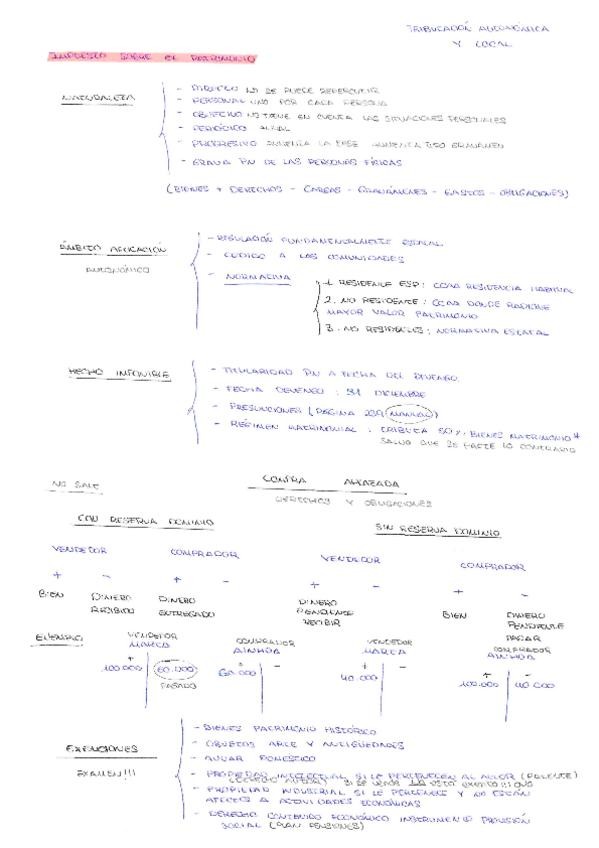 TRIBUTACIÓN AUTONÓMICA
Y LOCAL
IMPUESTO SOBRE EL PATRIMONIO
NATURALEZA
- DIRECTO NO SE PUEDE REPERCUTIR
- PERSONAL UNO POR CADA PERSONA
- OBJETIVO NO TIENE EN CUENTA LAS SITUACIONES PERSONALES
- PERIÓDICO ANUAL
- PROGRESIVO AUMENTA LA BASE AUMENTA TIPO GRAVAMEN
- GRAVA PN DE LAS PERSONAS FÍSICAS
(BIENES + DERECHOS - CARGAS - GRAVÁMENES - GASTOS - OBLIGACIONES)
ÁMBITO APLICACIÓN
AUTONÓMICO
- REGULACIÓN FUNDAMENTALMENTE ESTATAL
- CEDIDO A LAS COMUNIDADES
- NORMATIVA
1. RESIDENTE ESP: CCAA RESIDENCIA HABITUAL
2. NO RESIDENTE: CCAA DONDE RADIQUE
MAYOR VALOR PATRIMONIO
3. NO RESIDENTES: NORMATIVA ESTATAL
HECHO IMPONIBLE
- TITULARIDAD PN A FECHA DEL DEVENGO.
- FECHA DEVENGO: 31 DICIEMBRE
- PRESUNCIONES (PÁGINA 239 MANUAL)
- RÉGIMEN MATRIMONIAL: TRIBUTA 50%: BIENES MATRIMONIO *
SALVO QUE SE PACTE LO CONTRARIO
NO SALE
COMPRA APLAZADA
DERECHOS Y OBLIGACIONES
CON RESERVA DOMINIO
SIN RESERVA DOMINIO
VENDEDOR COMPRADOR
VENDEDOR COMPRADOR
+ - + -
+ - + -
BIEN DINERO RECIBIDO
DINERO ENTREGADO
DINERO PENDIENTE RECIBIR
BIEN DINERO PENDIENTE PAGAR
EJEMPLO
VENDEDOR MARCA
COMPRADOR AINHOA
VENDEDOR MARCA
COMPRADOR AINHOA
+ - + - + - + -
100.000 60.000 60.000 40.000 100.000 40.000
PAGADO
EXENCIONES
EXAMEN!!!
- BIENES PATRIMONIO HISTÓRICO
- OBJETOS ARTE Y ANTIGÜEDADES
- AJUAR DOMÉSTICO
- PROPIEDAD INTELECTUAL SI LE PERTENECEN AL AUTOR (PATENTE)
- PROPIEDAD INDUSTRIAL SI LE PERTENECE Y NO ESTÁN
AFECTOS A ACTIVIDADES ECONÓMICAS
- DERECHO CONTENIDO ECONÓMICO INSTRUMENTO PREVISIÓN
SOCIAL (PLAN PENSIONES)